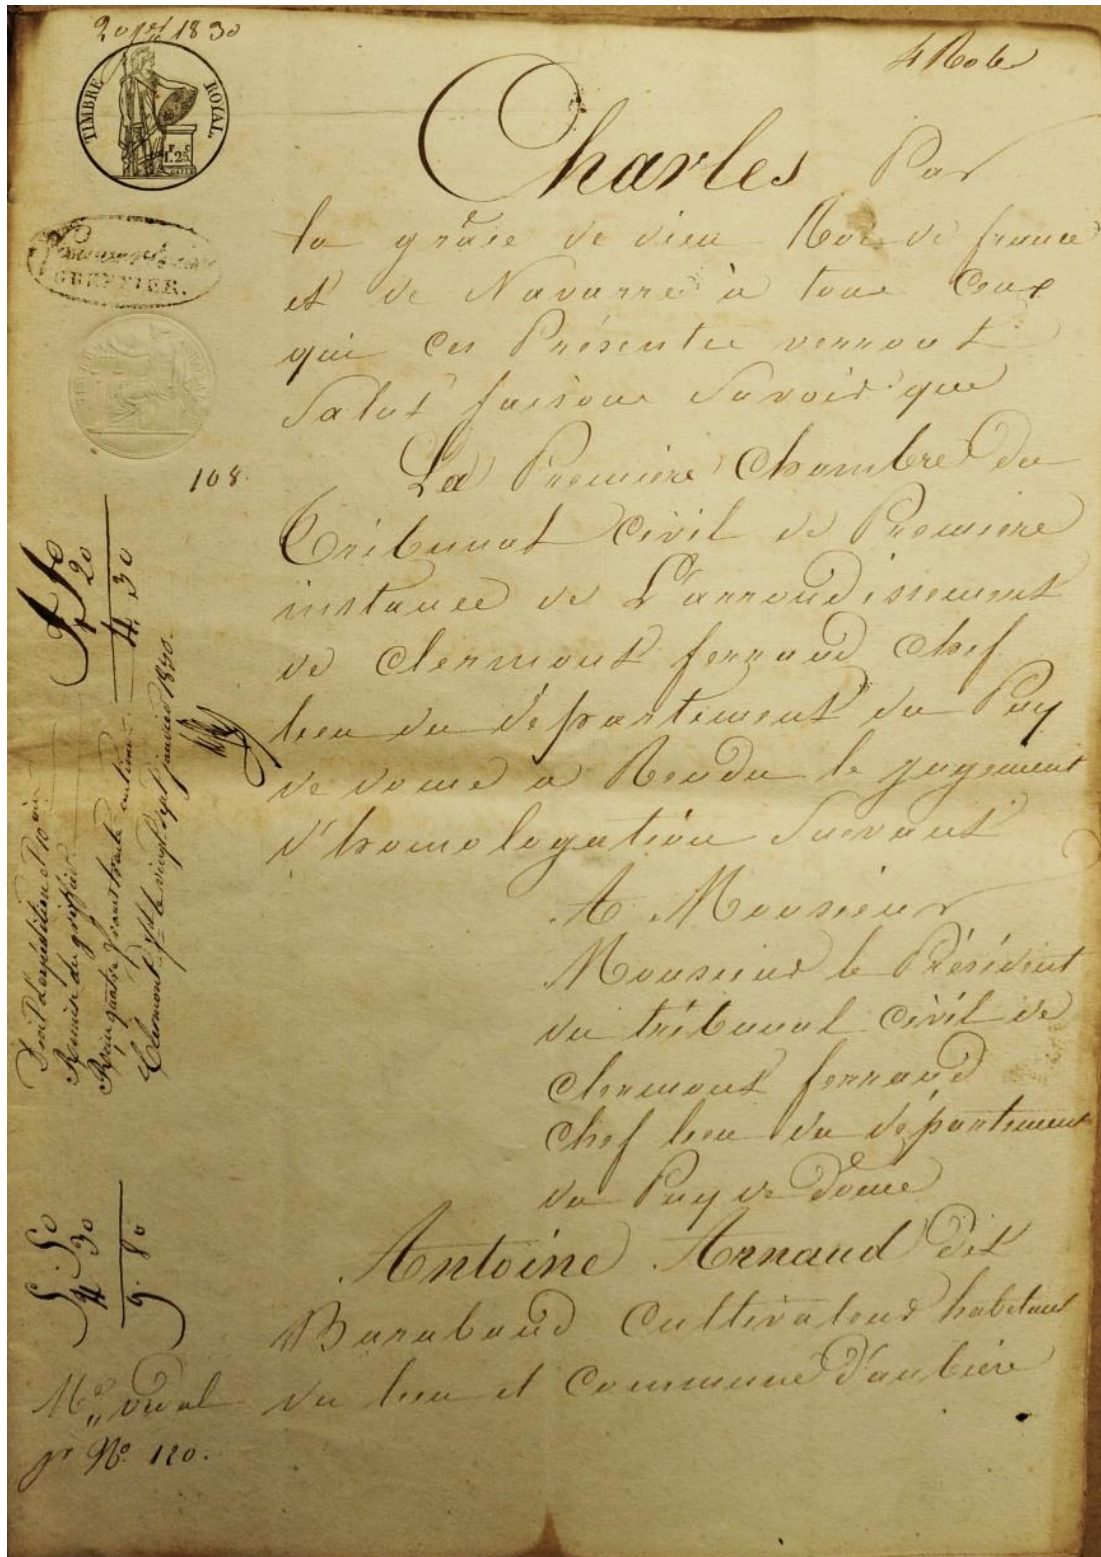 20 jer 1830
4 Roles
TIMBRE ROYAL.
F. C
1.25
GREFFIER.
Charles Par
la grâce de dieu Roi de france
et de Navarre à tous Ceux
qui Ces Présentes verront
Salut faisons Savoir que
108.
La Première Chambre du
Tribunal Civil de Première
instance de L'arrondissement
de Clermont ferrand Chef
lieu du département du Puy
de dome a Rendu le jugement
d'homologation Suivant
A Monsieur
Monsieur le Président
du tribunal Civil de
Clermont ferrand
Chef lieu du département
du Puy de Dome
Antoine Arnaud Dit
Barabaud Cultivateur habitant
du lieu et Commune D'aubière
Droit d'expédition et 10me
Remise du greffier
20
4. 30
Reçu quatre francs trente centimes
Clermont fd le vingt sept janvier 1830.
5. 50
4 30
9. 80
Me vidal
pr No. 120.